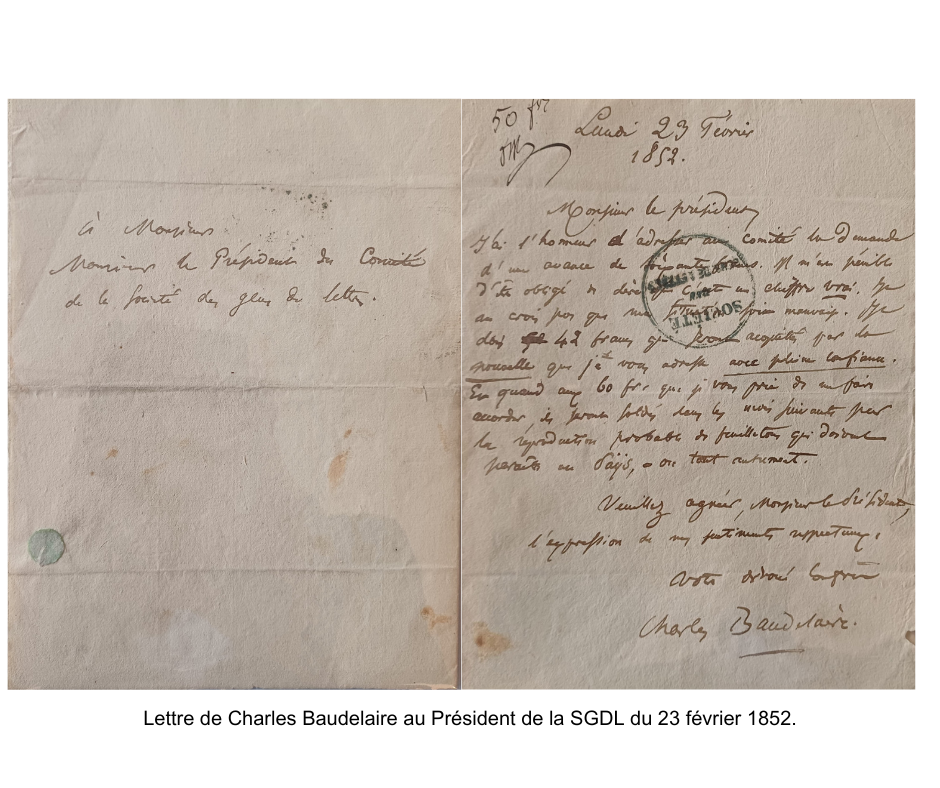 à Monsieur
Monsieur le Président du Comité
de la Société des gens de lettres.
50 frs
Lundi 23 Février
1852.
Monsieur le président,
J'ai l'honneur d'adresser au comité la demande
d'une avance de soixante francs. Il m'est pénible
d'être obligé de un chiffre vrai. Je
ne crois pas que ma soit mauvaise. Je
dois 42 francs qui seront acquittés par la
nouvelle que je vous adresse avec pleine confiance.
Et quand aux 60 frs que je vous prie de me faire
accorder, ils seront soldés dans les mois suivants par
la réproduction probable de feuilletons qui doivent
paraître au Päys, – ou tout autrement.
Veuillez agréer, Monsieur le Président,
l'expression de mes sentiments respectueux.
Votre dévoué confrère
Charles Baudelaire.
SOCIÉTÉ
DES
GENS DE LETTRES
Lettre de Charles Baudelaire au Président de la SGDL du 23 février 1852.